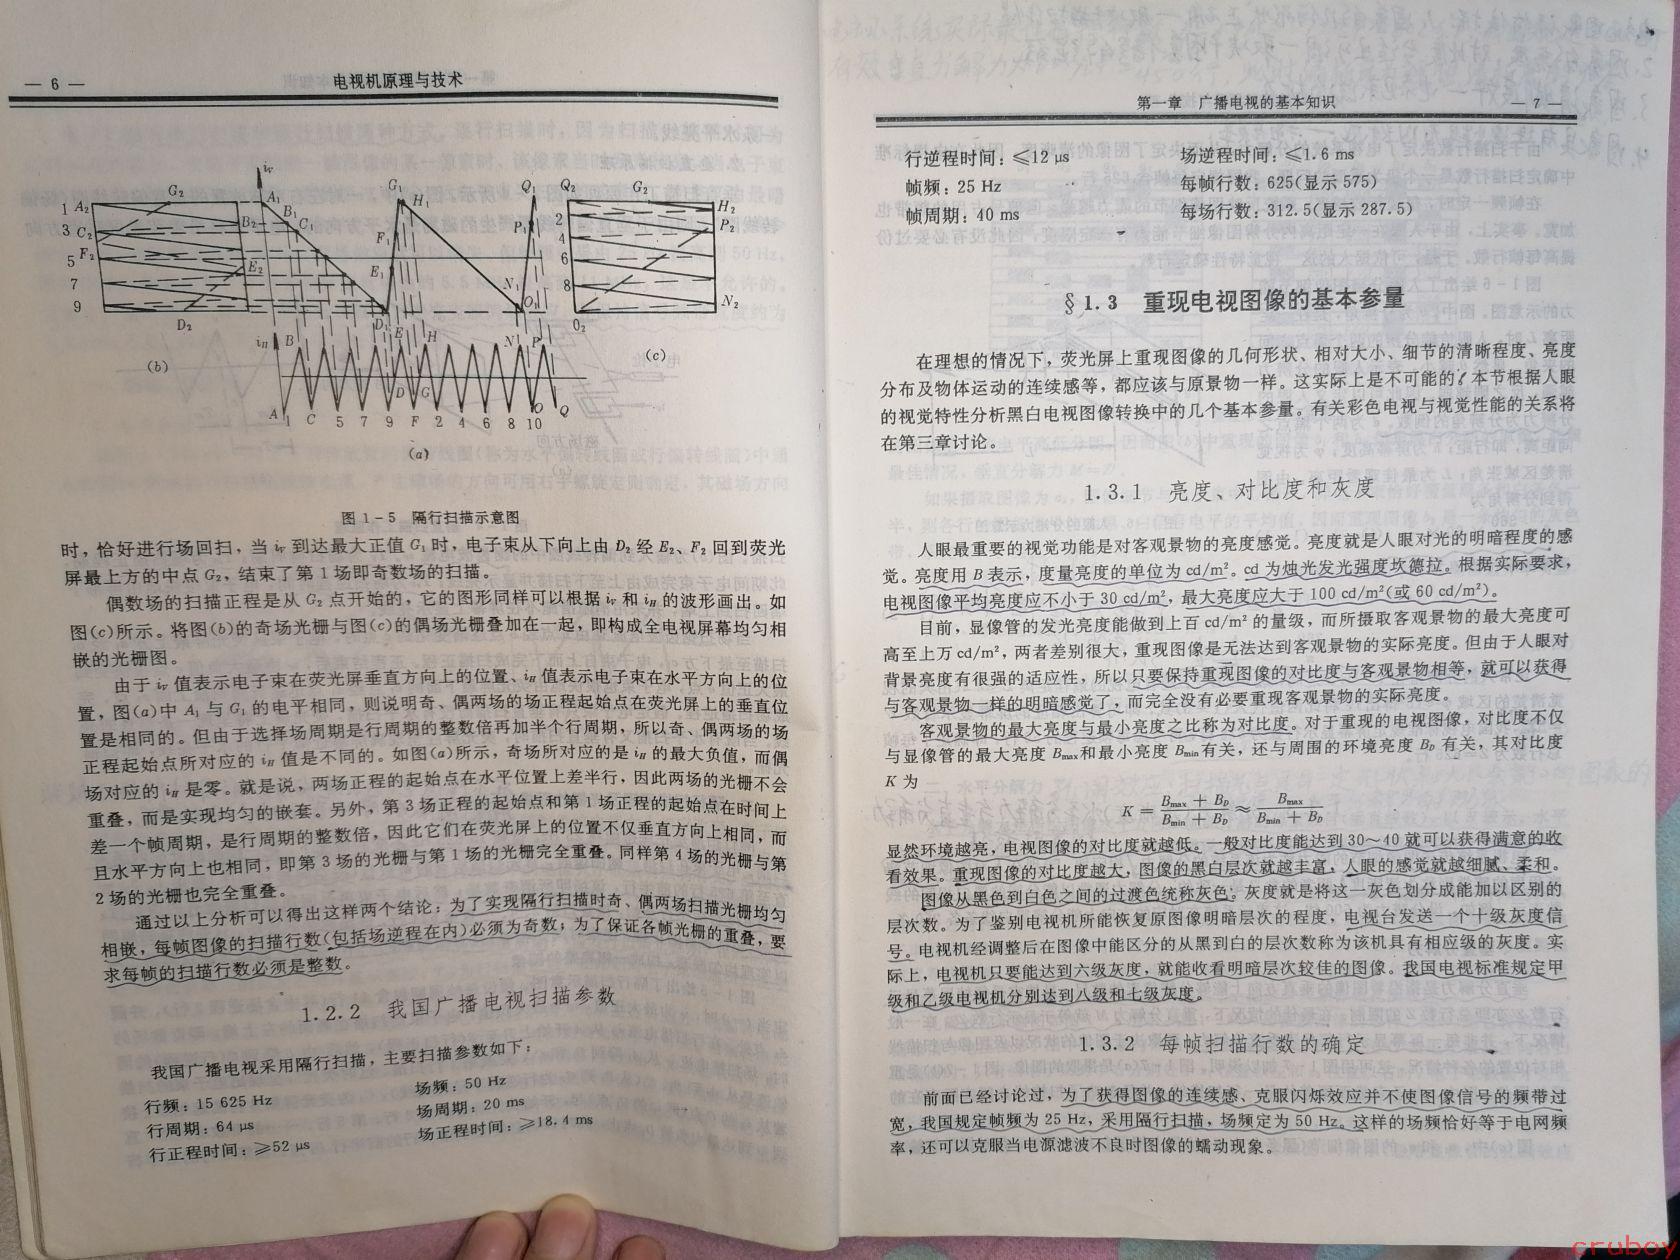 — 6 —
电视机原理与技术
1 A₂ G₂ B₂
3 C₂
5 F₂ E₂
7
9
D₂
(b)
iᵥ A₁ B₁ C₁ G₁ H₁ F₁ E₁ D₁ Q₁ P₁ N₁ O₁
iH B E H N P
D G O
A 1 C 3 5 7 9 F 2 4 6 8 10 Q
(a)
Q₂ G₂ H₂
2 P₂
4
6
8 N₂
O₂
(c)
图 1-5 隔行扫描示意图
时，恰好进行场回扫，当 iᵥ 到达最大正值 G₁ 时，电子束从下向上由 D₂ 经 E₂、F₂ 回到荧光
屏最上方的中点 G₂，结束了第 1 场即奇数场的扫描。
偶数场的扫描正程是从 G₂ 点开始的，它的图形同样可以根据 iᵥ 和 iH 的波形画出。如
图(c)所示。将图(b)的奇场光栅与图(c)的偶场光栅叠加在一起，即构成全电视屏幕均匀相
嵌的光栅图。
由于 iᵥ 值表示电子束在荧光屏垂直方向上的位置、iH 值表示电子束在水平方向上的位
置，图(a)中 A₁ 与 G₁ 的电平相同，则说明奇、偶两场的场正程起始点在荧光屏上的垂直位
置是相同的。但由于选择场周期是行周期的整数倍再加半个行周期，所以奇、偶两场的场
正程起始点所对应的 iH 值是不同的。如图(a)所示，奇场所对应的是 iH 的最大负值，而偶
场对应的 iH 是零。就是说，两场正程的起始点在水平位置上差半行，因此两场的光栅不会
重叠，而是实现均匀的嵌套。另外，第 3 场正程的起始点和第 1 场正程的起始点在时间上
差一个帧周期，是行周期的整数倍，因此它们在荧光屏上的位置不仅垂直方向上相同，而
且水平方向上也相同，即第 3 场的光栅与第 1 场的光栅完全重叠。同样第 4 场的光栅与第
2 场的光栅也完全重叠。
通过以上分析可以得出这样两个结论：为了实现隔行扫描时奇、偶两场扫描光栅均匀
相嵌，每帧图像的扫描行数(包括场逆程在内)必须为奇数；为了保证各帧光栅的重叠，要
求每帧的扫描行数必须是整数。
1.2.2 我国广播电视扫描参数
我国广播电视采用隔行扫描，主要扫描参数如下：
行频：15 625 Hz 场频：50 Hz
行周期：64 μs 场周期：20 ms
行正程时间：⩾52 μs 场正程时间：⩾18.4 ms
第一章 广播电视的基本知识 — 7 —
行逆程时间：⩽12 μs 场逆程时间：⩽1.6 ms
帧频：25 Hz 每帧行数：625(显示 575)
帧周期：40 ms 每场行数：312.5(显示 287.5)
§ 1.3 重现电视图像的基本参量
在理想的情况下，荧光屏上重现图像的几何形状、相对大小、细节的清晰程度、亮度
分布及物体运动的连续感等，都应该与原景物一样。这实际上是不可能的。本节根据人眼
的视觉特性分析黑白电视图像转换中的几个基本参量。有关彩色电视与视觉性能的关系将
在第三章讨论。
1.3.1 亮度、对比度和灰度
人眼最重要的视觉功能是对客观景物的亮度感觉。亮度就是人眼对光的明暗程度的感
觉。亮度用 B 表示，度量亮度的单位为 cd/m²。cd 为烛光发光强度坎德拉。根据实际要求，
电视图像平均亮度应不小于 30 cd/m²，最大亮度应大于 100 cd/m²(或 60 cd/m²)。
目前，显像管的发光亮度能做到上百 cd/m² 的量级，而所摄取客观景物的最大亮度可
高至上万 cd/m²，两者差别很大，重现图像是无法达到客观景物的实际亮度。但由于人眼对
背景亮度有很强的适应性，所以只要保持重现图像的对比度与客观景物相等，就可以获得
与客观景物一样的明暗感觉了，而完全没有必要重现客观景物的实际亮度。
客观景物的最大亮度与最小亮度之比称为对比度。对于重现的电视图像，对比度不仅
与显像管的最大亮度 Bmax和最小亮度 Bmin有关，还与周围的环境亮度 B_D 有关，其对比度
K 为
K = (Bmax + B_D)/(Bmin + B_D) ≈ Bmax/(Bmin + B_D)
显然环境越亮，电视图像的对比度就越低。一般对比度能达到 30～40 就可以获得满意的收
看效果。重现图像的对比度越大，图像的黑白层次就越丰富，人眼的感觉就越细腻、柔和。
图像从黑色到白色之间的过渡色统称灰色。灰度就是将这一灰色划分成能加以区别的
层次数。为了鉴别电视机所能恢复原图像明暗层次的程度，电视台发送一个十级灰度信
号。电视机经调整后在图像中能区分的从黑到白的层次数称为该机具有相应级的灰度。实
际上，电视机只要能达到六级灰度，就能收看明暗层次较佳的图像。我国电视标准规定甲
级和乙级电视机分别达到八级和七级灰度。
1.3.2 每帧扫描行数的确定
前面已经讨论过，为了获得图像的连续感、克服闪烁效应并不使图像信号的频带过
宽，我国规定帧频为 25 Hz，采用隔行扫描，场频定为 50 Hz。这样的场频恰好等于电网频
率，还可以克服当电源滤波不良时图像的蠕动现象。
cruboy